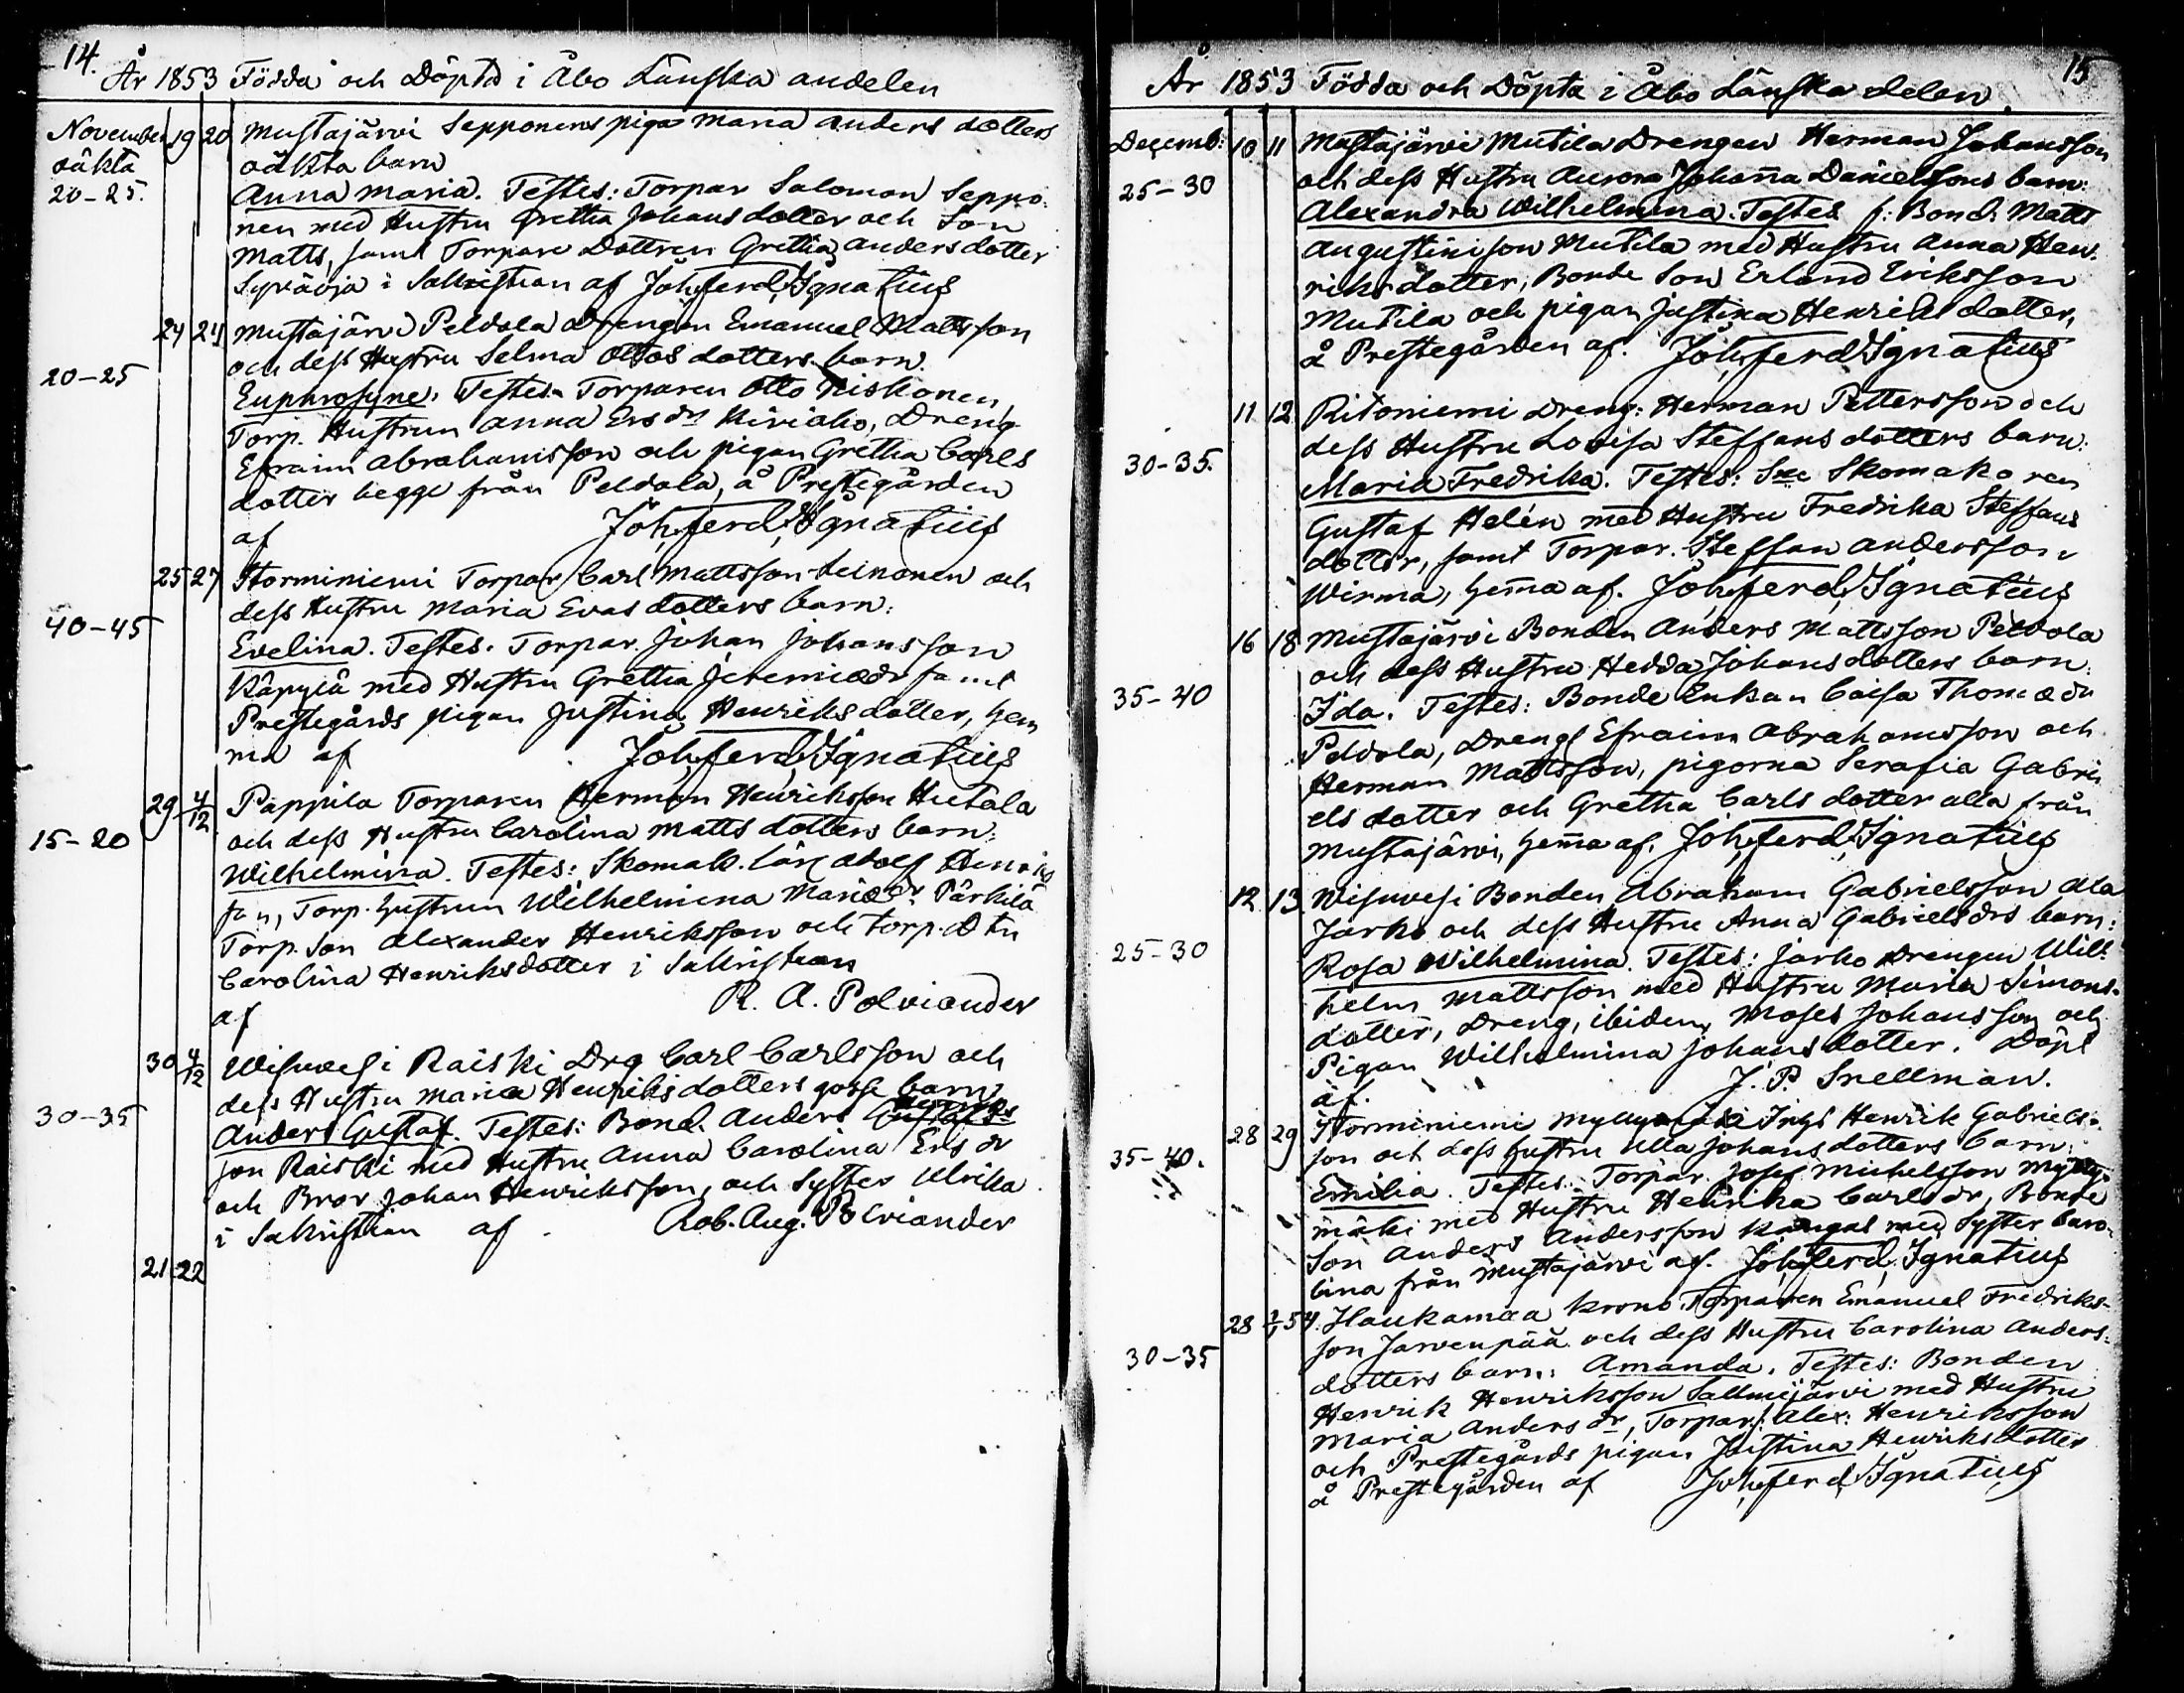 14.
År 1853 Födda och Döpta i Åbo Länska andelen
November oäkta 20-25. 19 20 Mustajärvi Sepponens piga Maria Anders dotters
oäkta barn
Anna Maria. Testes: Torpar Salomon Seppo-
nen med Hustru Gretha Johans dotter och Son
Matts, samt Torpare Dottren Gretha Anders dotter
i Sakristian af Joh. ferd. Ignatius
20-25 24 24 Mustajärvi Peldola Drengen Emanuel Mattsson
och dess Hustru Selma Ottos dotters barn.
Euphrosyne. Testes. Torparen Otto Niskonen,
Torp. Hustrun Anna Ers dr Kiviaho, Dreng
Efraim Abrahamsson och pigan Gretha Carls
dotter begge från Peldola, å Prestegården
af Joh. ferd. Ignatius
40-45 25 27 Storminiemi Torpar Carl Mattsson Leinonen och
dess Hustru Maria Evas dotters barn:
Evelina. Testes. Torpar. Johan Johansson
Käpylä med Hustru Gretha Jeremiædr samt
Prestegårds pigan Justina Henriks dotter, hem
ma af Joh. ferd. Ignatius
15-20 29 4/12 Pappila Torparen Herman Henriksson Hietala
och dess Hustru Carolina Matts dotters barn:
Wilhelmina. Testes: Skomak. lärl. Adolf Henriks
son, Torp. hustrun Wilhelmina Mariædr Pärkilä
Torp. Son Alexander Henriksson och torp. Dtn
Carolina Henriksdotter i Sakristian
af R. A. Polviander
30-35 30 4/12 Wisuvesi Raiski Drg Carl Carlsson och
dess Hustru Maria Henriks dotters gosse barn
Anders Gustaf. Testes: Bond. Anders Henriks
son Raiski med Hustru Anna Carolina Ers dr
och Bror Johan Henriksson, och Syster Ulrika
i Sakristian af Rob. Aug. Polviander
21 22
15
År 1853 Födda och Döpta i Åbo Länska delen.
Decemb: 25-30 10 11 Mustajärvi Mutila Drengen Herman Johansson
och dess Hustru Aurora Johanna Danielssons barn:
Alexandra Wilhelmina. Testes f: Bond. Matts
Augustinison Mutila med Hustru Anna Hen-
riks dotter, Bonde Son Erland Eriksson
Mutila och pigan Justina Henriks dotter,
å Prestegården af. Joh. ferd. Ignatius
30-35. 11 12 Ritoniemi Dreng: Herman Pettersson och
dess Hustru Lovisa Steffans dotters barn:
Maria Fredrika. Testes: Skomakaren
Gustaf Helén med Hustru Fredrika Steffans
dotter, samt Torpar. Steffan Andersson
Wirma, hemma af. Joh. ferd. Ignatius
35-40 16 18 Mustajärvi Bonden Anders Mattsson Peldola
och dess Hustru Hedda Johans dotters barn:
Ida. Testes: Bonde Enkan Caisa Thomædr
Peldola, Dreng Efraim Abrahamsson och
Herman Mattsson, pigorna Serafia Gabri
els dotter och Gretha Carls dotter alla från
Mustajärvi, hemma af. Joh. ferd. Ignatius
25-30 12 13 Wisuvesi Bonden Abraham Gabrielsson Ala
Jarko och dess Hustru Anna Gabriels drs barn:
Rosa Wilhelmina. Testes: Jarko Drengen Wil-
helm Mattsson med Hustru Maria Simons-
dotter, Dreng, ibidem, Moses Johansson och
Pigan Wilhelmina Johans dotter. Döpt
af. J. P. Snellman.
35-40. 28 29 Storminiemi Myllymäki Inhs Henrik Gabriels-
son och dess hustru Ulla Johans dotters barn:
Emilia. Testes. Torpar Josef Michelsson Mylly-
mäki med Hustru Henrika Carls dr, Bonde
Son Anders Andersson Kangas med Syster Caro-
lina från Mustajärvi af. Joh. ferd. Ignatius
30-35 28 54. Haukamaa Krono Torparen Emanuel Fredriks-
son Jarvenpää och dess Hustru Carolina Anders-
dotters barn: Amanda. Testes: Bonden
Henrik Henriksson med Hustru
Maria Anders dr, Torpar. Alex: Henriksson
och Prestegårds pigan Justina Henriks dotter
å Prestegården af Joh. ferd. Ignatius